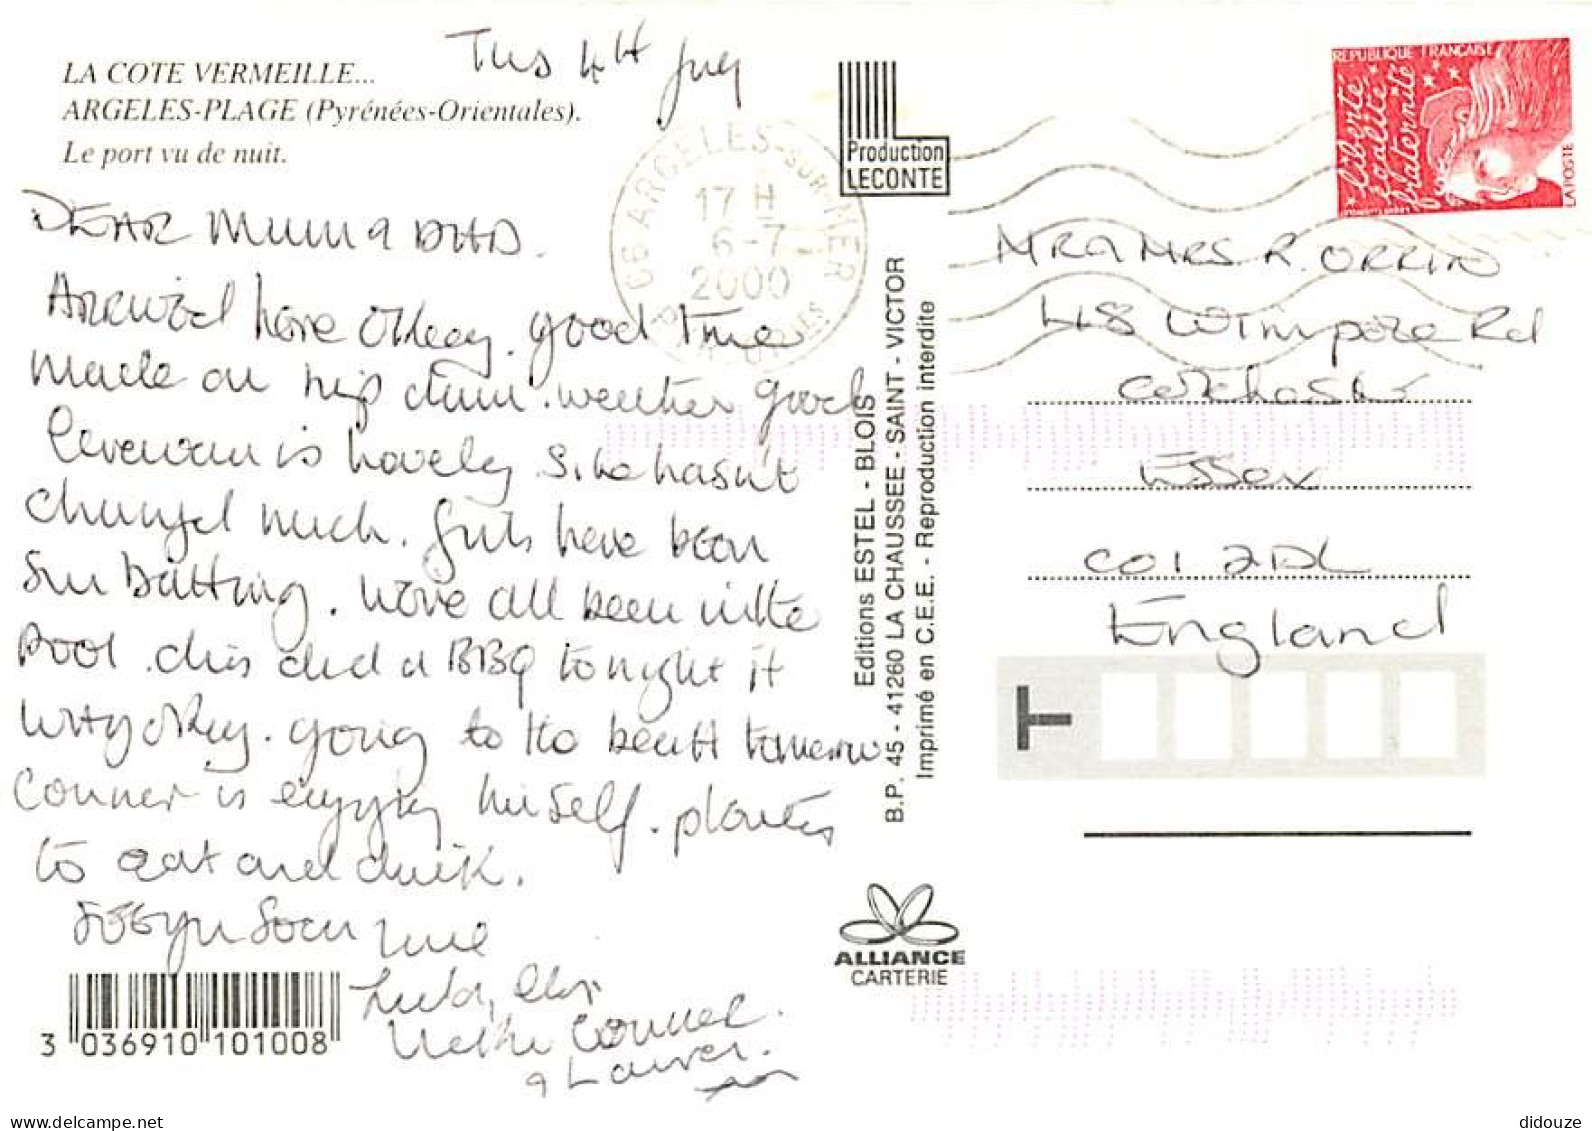 LA COTE VERMEILLE...
ARGELES-PLAGE (Pyrénées-Orientales).
Le port vu de nuit.
Tus 4th July
DEAR Mum & DAD.
Arrived here Okay. good time
made on trip down. weather good
Caravan is lovely Site hasn't
changed much. Girls have been
Sun Batting. We've all been in the
Pool. chris did a BBQ tonight it
WAy okay. going to the beach tomorrow
Conner is enjoying himself. plenty
to eat and drink.
See you Soon love
Linda, chris
Conner.
& Lauren.
3 036910 101008
Production
LECONTE
66 ARGELES-SUR-MER
17 H
6-7
2000
Editions ESTEL - BLOIS
B.P. 45 - 41260 LA CHAUSSEE - SAINT - VICTOR
Imprimé en C.E.E. - Reproduction interdite
ALLIANCE
CARTERIE
REPUBLIQUE FRANÇAISE
liberté
égalité
fraternité
LA POSTE
MR & MRS R. ORRIN
48 Wimpole Rd
Colchester
Essex
CO1 2DL
England
T
didouze